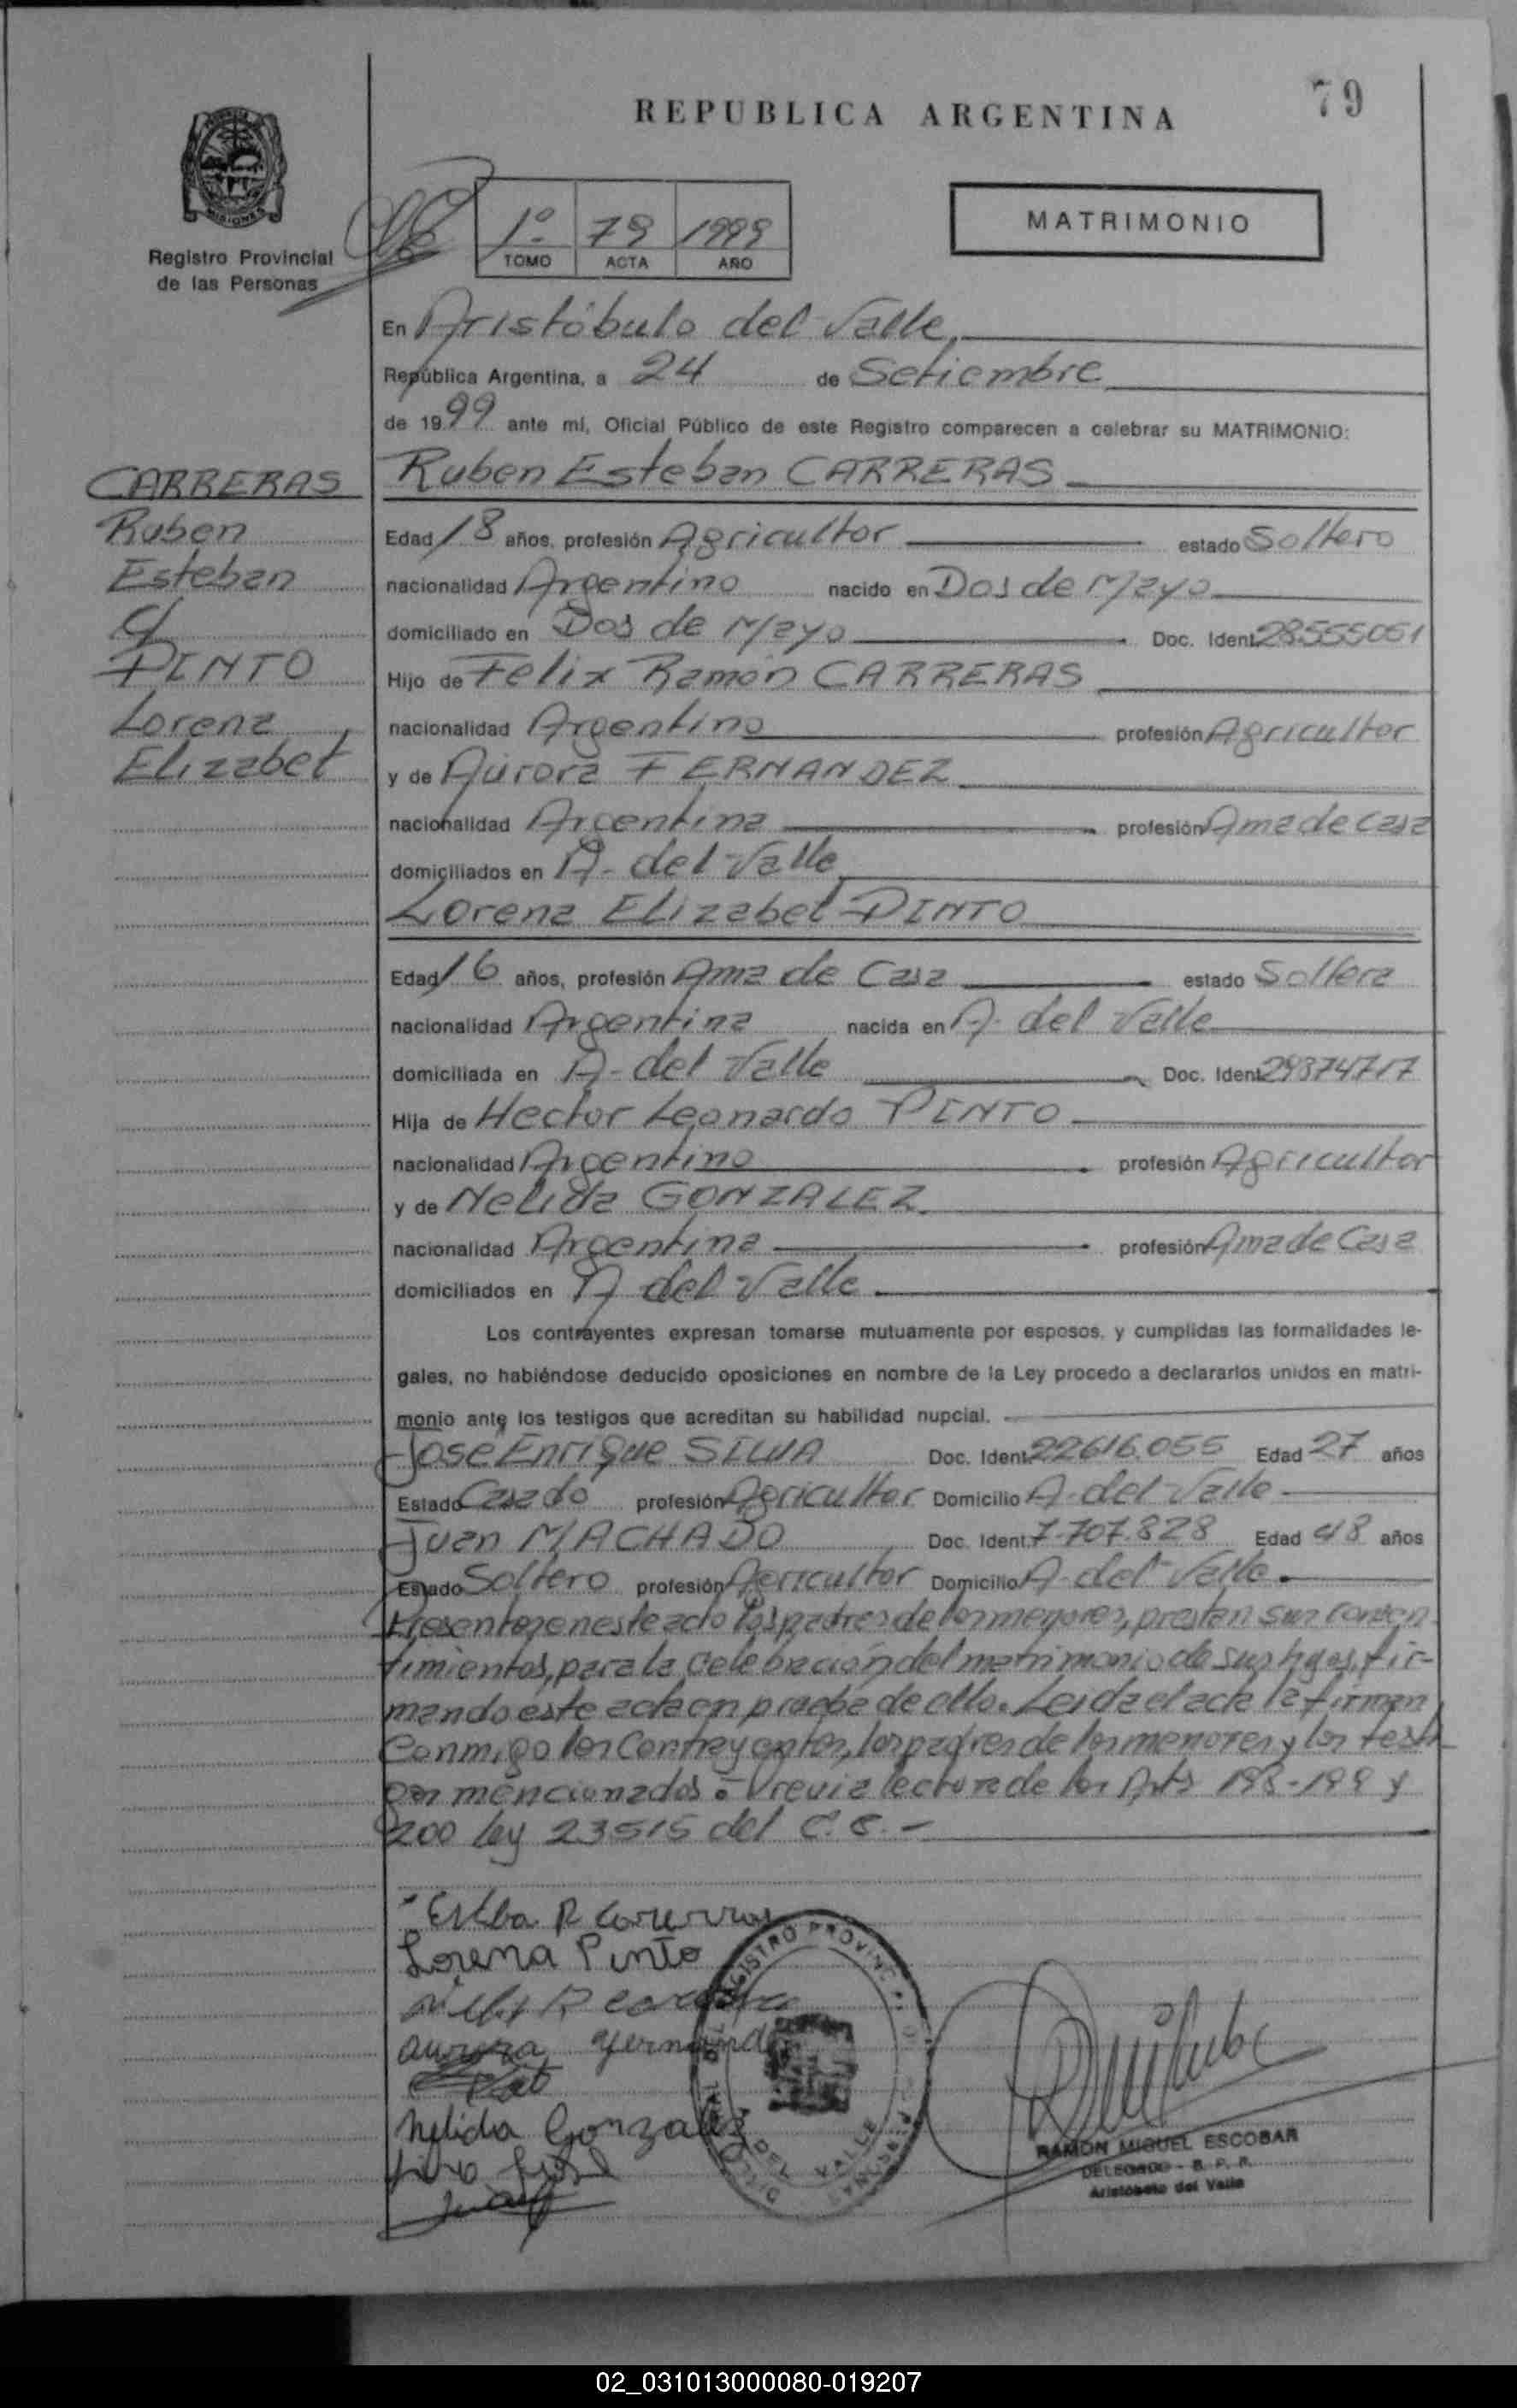 79
REPUBLICA ARGENTINA
MISIONES
Registro Provincial
de las Personas
1º 79 1999
TOMO ACTA AÑO
MATRIMONIO
En Aristóbulo del Valle,
República Argentina, a 24 de Setiembre
de 1999 ante mí, Oficial Público de este Registro comparecen a celebrar su MATRIMONIO:
CARRERAS
Ruben
Esteban
c/
PINTO
Lorena
Elizabet
Ruben Esteban CARRERAS
Edad 18 años, profesión Agricultor estado Soltero
nacionalidad Argentino nacido en Dos de Mayo
domiciliado en Dos de Mayo Doc. Ident. 28.555051
Hijo de Felix Ramón CARRERAS
nacionalidad Argentino profesión Agricultor
y de Aurora FERNANDEZ
nacionalidad Argentina profesión Ama de casa
domiciliados en A. del Valle
Lorena Elizabet PINTO
Edad 16 años, profesión Ama de Casa estado Soltera
nacionalidad Argentina nacida en A. del Valle
domiciliada en A- del Valle Doc. Ident.
Hija de Hector Leonardo PINTO
nacionalidad Argentino profesión Agricultor
y de Nelida GONZALEZ.
nacionalidad Argentina profesión Ama de Casa
domiciliados en A del Valle
Los contrayentes expresan tomarse mutuamente por esposos, y cumplidas las formalidades le-
gales, no habiéndose deducido oposiciones en nombre de la Ley procedo a declararlos unidos en matri-
monio ante los testigos que acreditan su habilidad nupcial.
Jose Enrique SILVA Doc. Ident. 22616.055 Edad 27 años
Estado Casado profesión Agricultor Domicilio A. del Valle
Juan MACHADO Doc. Ident. 7.707.828 Edad 48 años
Estado Soltero profesión Agricultor Domicilio A. del Valle.
Presentes en este acto los padres de los menores, prestan sus consen
timientos, para la celebración del matrimonio de sus hijos, fir-
mando este acta en prueba de ello. Leida el acta la firman
conmigo los Contrayentes, los padres de los menores y los testi
gos mencionados.- Previa lectura de los Arts 198-199 y
200 Ley 23515 del C.C.-
Lorena Pinto
aurora
Nelida Gonzalez
REGISTRO PROVINCIAL
DEL VALLE
RAMON MIGUEL ESCOBAR
DELEGADO - R. P. P.
Aristóbulo del Valle
02_031013000080-019207